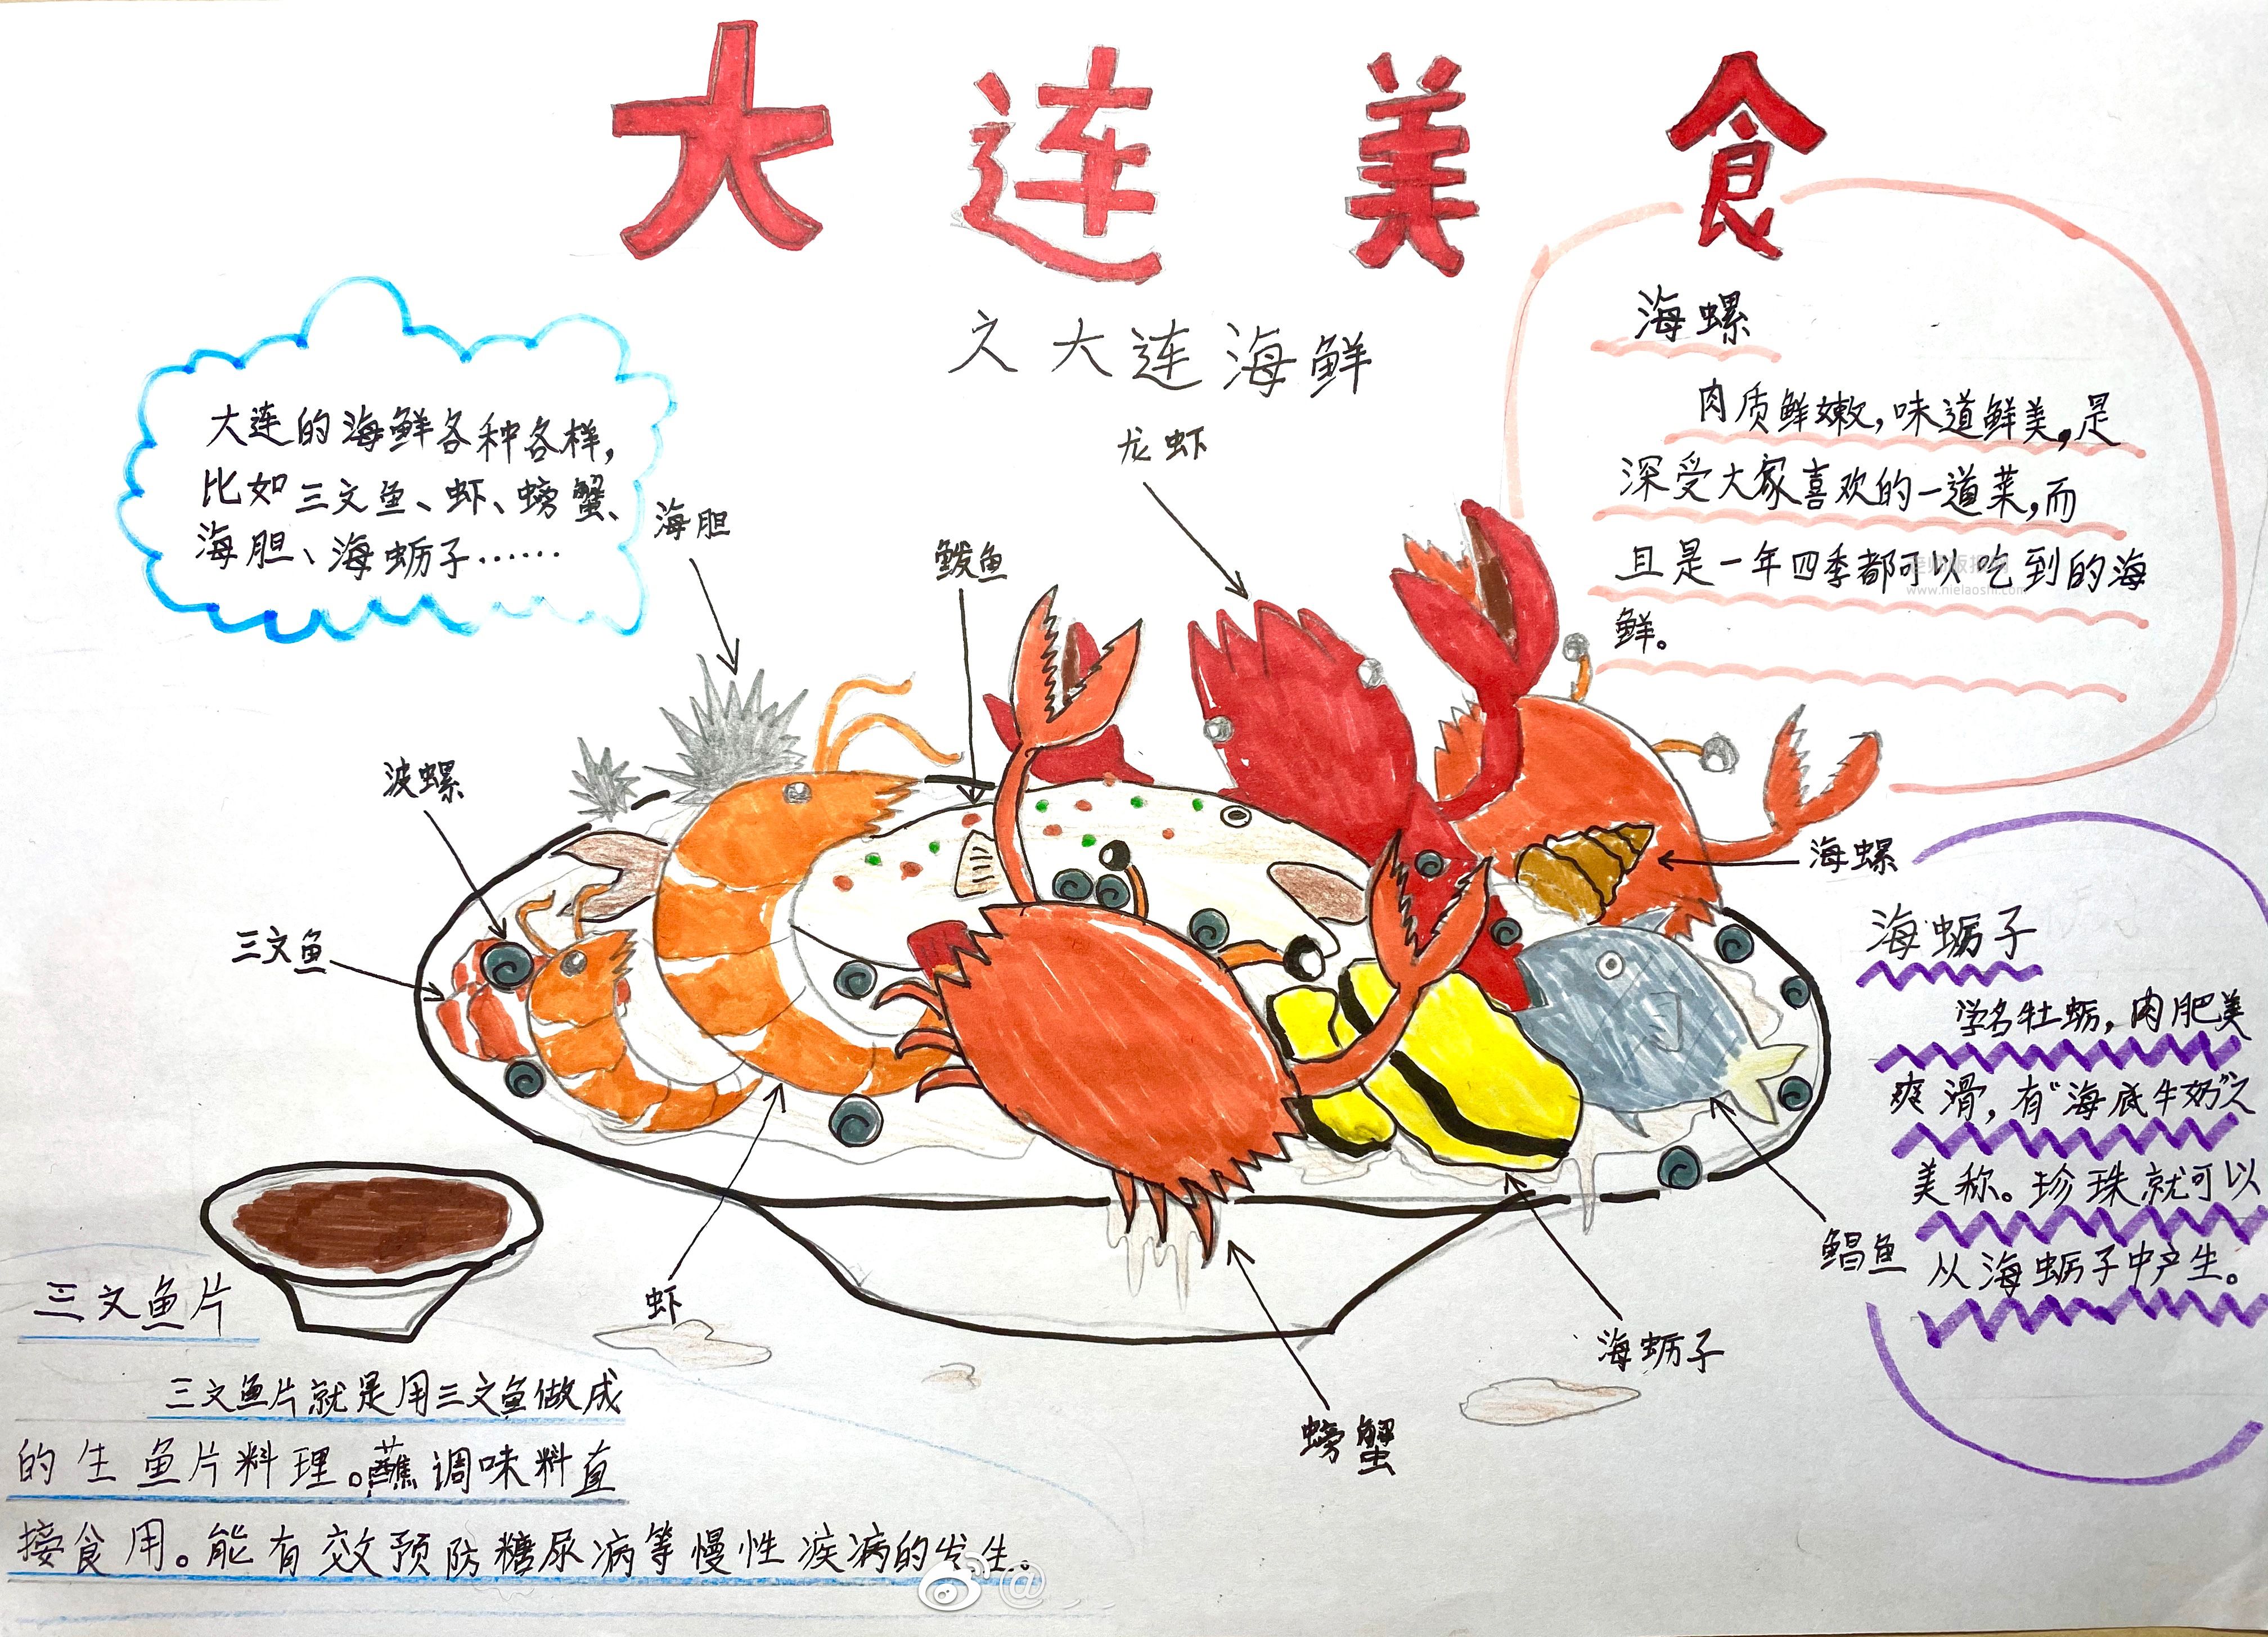 大连美食
之大连海鲜
大连的海鲜各种各样，
比如三文鱼、虾、螃蟹、
海胆、海蛎子……
海螺
肉质鲜嫩，味道鲜美，是
深受大家喜欢的一道菜，而
且是一年四季都可以吃到的海
鲜。
www.nielaoshi.com
龙虾
海胆
鲅鱼
波螺
三文鱼
海螺
海蛎子
学名牡蛎，肉肥美
爽滑，有“海底牛奶”之
美称。珍珠就可以
从海蛎子中产生。
鲳鱼
虾
海蛎子
螃蟹
三文鱼片
三文鱼片就是用三文鱼做成
的生鱼片料理。蘸调味料直
接食用。能有效预防糖尿病等慢性疾病的发生。